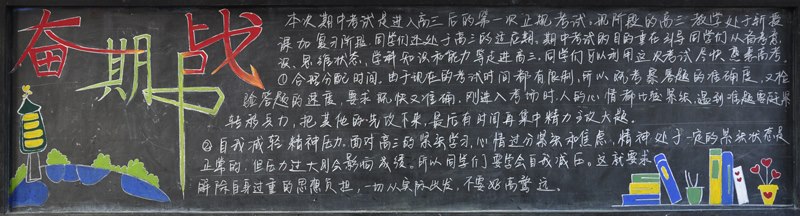 奋战期中
本次期中考试是进入高三后的第一次正规考试,现阶段的高三教学处于新授
课加复习阶段,同学们还处于高三的适应期,期中考试的目的重在引导同学们从备考意
识、思维状态、学科知识和能力等走进高三,同学们可以利用这次考试尽快适应高考。
①合理分配时间。由于现在的考试时间都有限制,所以既考察答题的准确度,又检
验答题的速度,要求既快又准确,刚进入考场时,人的心情都比较紧张,遇到难题要赶快
转移兵力,把其他的先攻下来,最后有时间再集中精力主攻大敌。
②自我减轻精神压力。面对高三的紧张学习,心情过分紧张和焦虑,精神处于一定的紧张状态是
正常的,但压力过大则会影响成绩。所以同学们要学会自我减压。这就要求
解除自身过重的思想负担,一切从实际出发,不要好高骛远。